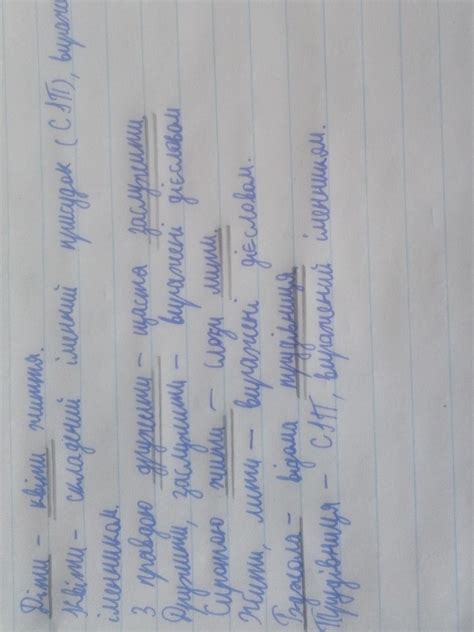 Діти - квіти життя.
Квіти - складений іменний присудок (СІП), вираже
іменником.
З правдою дружити - щастя заслужити
Дружити, заслужити - виражені дієсловом
Сиротою жити - сльози лити.
Жити, лити - виражені дієсловом.
Бджола - відома трудівниця
Трудівниця - СІП, виражений іменником.